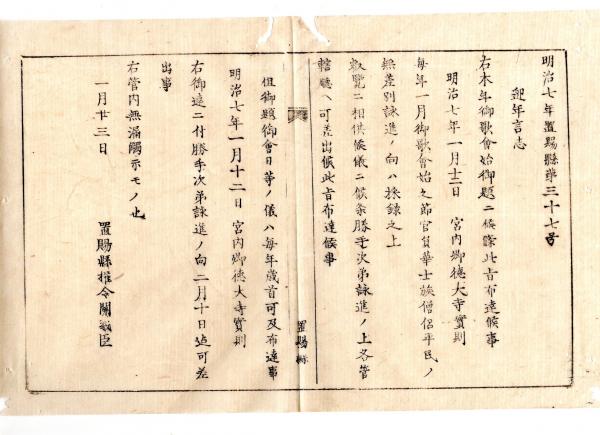 明治七年置賜縣第三十七号
迎年言志
右本年御歌會始御題ニ候條此旨布達候事
明治七年一月十二日 宮内卿德大寺實則
每年一月御歌會始之節官員華士族僧侶平民ノ
無差別詠進ノ向ハ採録之上
叡覽ニ相供候儀ニ候条勝手次第詠進ノ上各管
轄聽ヘ可差出候此旨布達候事
置賜縣
但御題御會日等ノ儀ハ每年歳首可及布達事
明治七年一月十二日 宮内卿德大寺實則
右御達ニ付勝手次第詠進ノ向二月十日迠可差
出事
右管内無漏觸示モノ也
一月廿三日
置賜縣権令關義臣